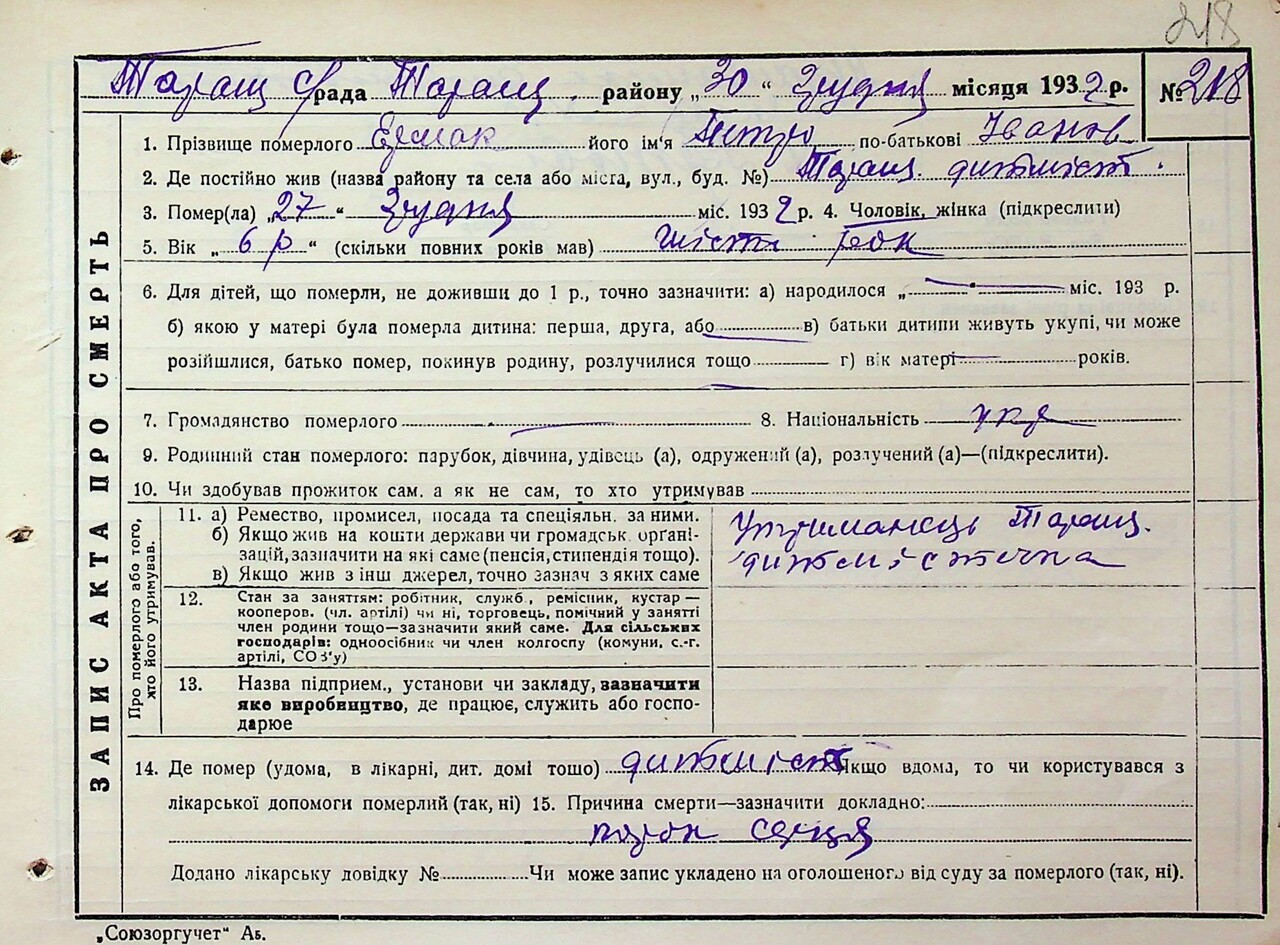 218
Таращ С/рада Таращ. району „30" Грудня місяця 1932 р. № 218
ЗАПИС АКТА ПРО СМЕРТЬ
1. Прізвище померлого Ермак його ім'я Петро по-батькові Іванов
2. Де постійно жив (назва району та села або міста, вул., буд. №) Таращ. дитміст.
3. Помер(ла) „27" Грудня міс. 1932 р. 4. Чоловік, жінка (підкреслити)
5. Вік „6 р" (скільки повних років мав) шість рок
6. Для дітей, що померли, не доживши до 1 р., точно зазначити: а) народилося „ " міс. 193 р.
б) якою у матері була померла дитина: перша, друга, або в) батьки дитини живуть укупі, чи може
розійшлися, батько помер, покинув родину, розлучилися тощо г) вік матері років.
7. Громадянство померлого 8. Національність укр
9. Родинний стан померлого: парубок, дівчина, удівець (а), одружений (а), розлучений (а)—(підкреслити).
10. Чи здобував прожиток сам, а як не сам, то хто утримував
Про померлого або того, хто його утримував.
11. а) Ремество, промисел, посада та спеціяльн. за ними.
б) Якщо жив на кошти держави чи громадськ. органі-
зацій, зазначити на які саме (пенсія, стипендія тощо).
в) Якщо жив з інш джерел, точно зазнач з яких саме
Утриманець Таращ.
дитмістечка
12. Стан за заняттям: робітник, служб, ремісник, кустар—
кооперов. (чл. артілі) чи ні, торговець, помічний у занятті
член родини тощо—зазначити який саме. Для сільських
господарів: одноосібник чи член колгоспу (комуни, с.-г.
артілі, СОЗ'у)
13. Назва підприєм., установи чи закладу, зазначити
яке виробництво, де працює, служить або госпо-
дарює
14. Де помер (удома, в лікарні, дит. домі тощо) дитміст Якщо вдома, то чи користувався з
лікарської допомоги померлий (так, ні) 15. Причина смерти—зазначити докладно:
порок серця
Додано лікарську довідку № Чи може запис укладено на оголошеного від суду за померлого (так, ні).
„Союзоргучет" Аб.